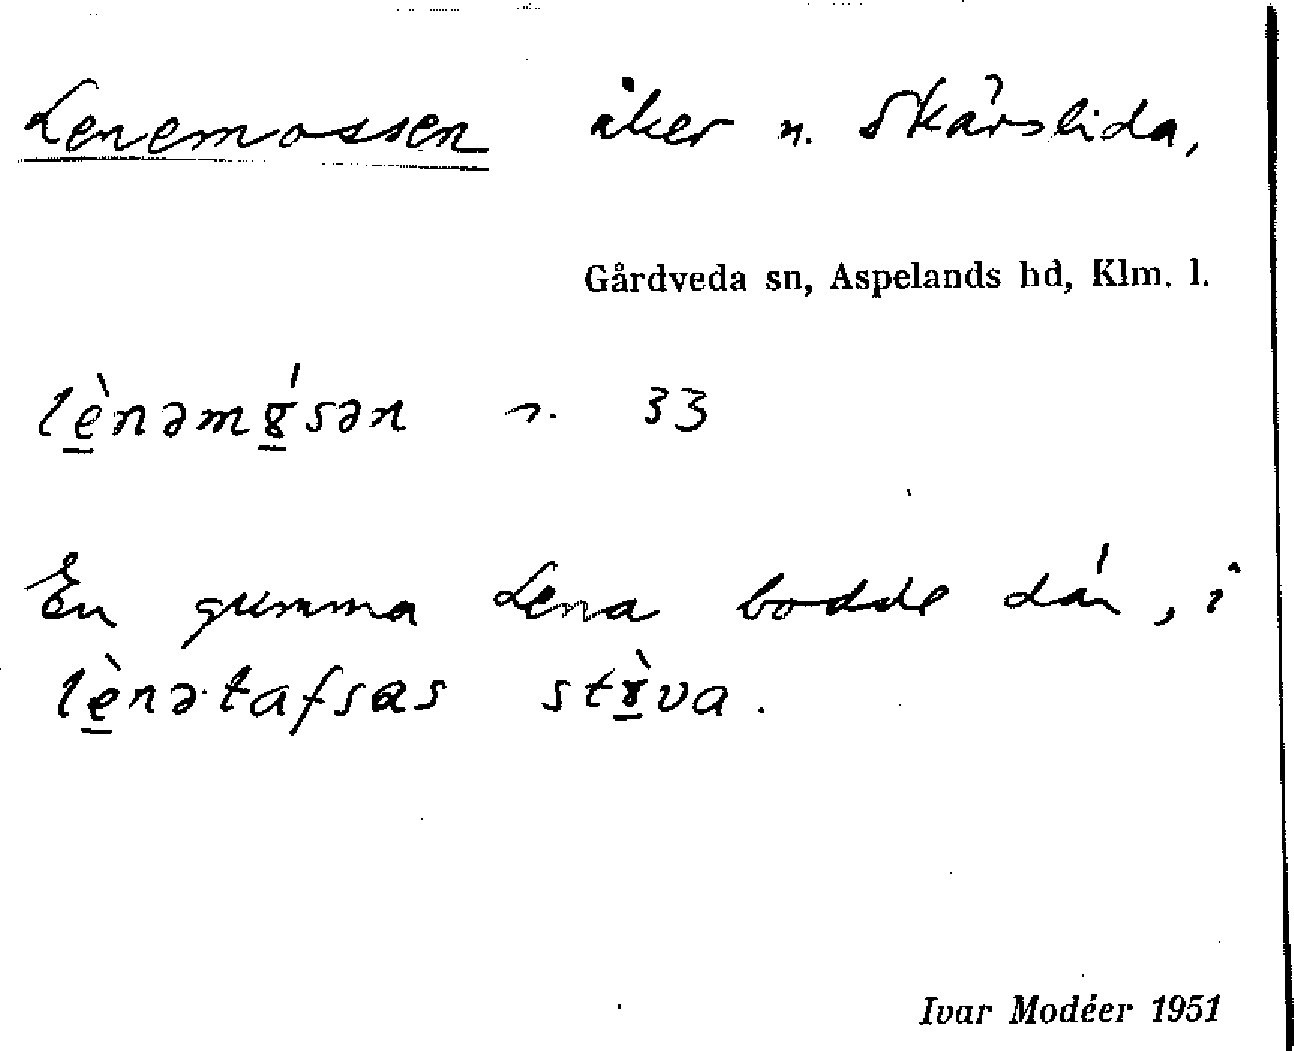 Lenemossen åker n. Skärslida,
Gårdveda sn, Aspelands hd, Klm. l.
lè̱nəmɤ̱́sən n. 33
En gumma Lena bodde där, i
lè̱nə·tafsas stɤ̱̀va.
Ivar Modéer 1951